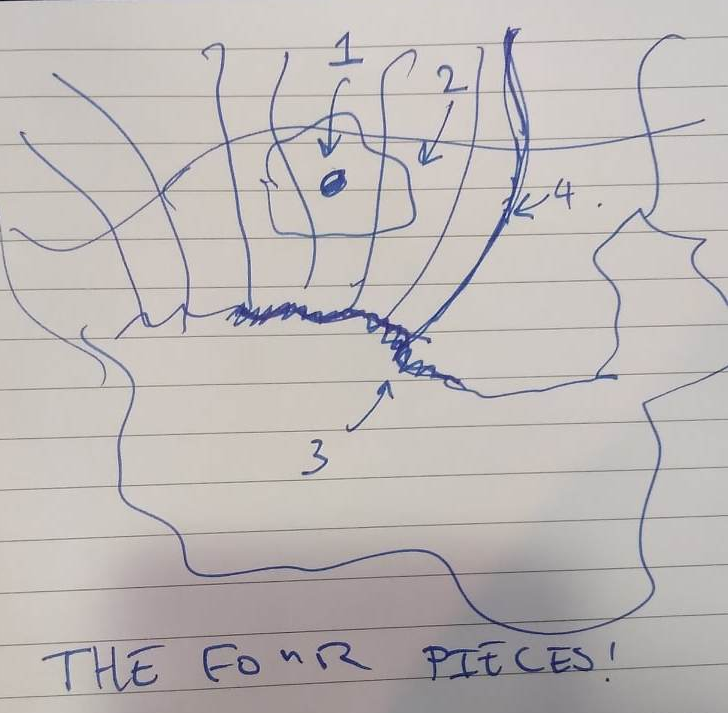 1
2
4.
3
THE FOUR PIECES!